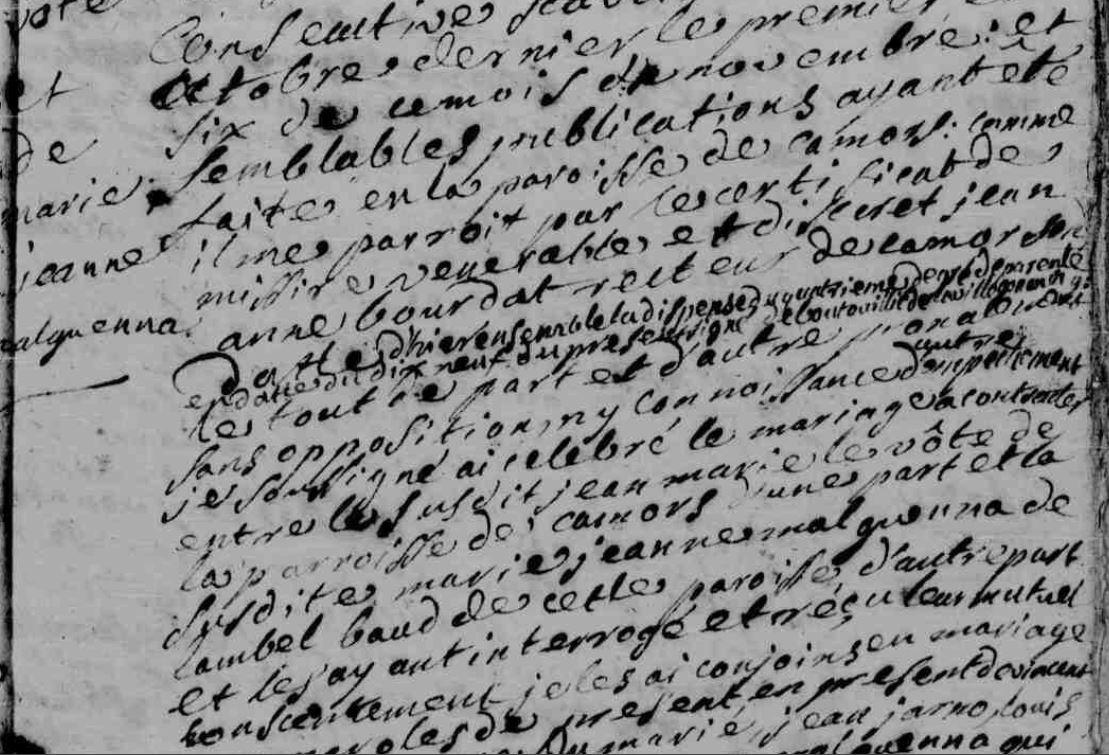 vôte
et
de
marie
jeanne
alguenna
Consecutives
octobre dernier le premier et
six de ce mois de novembre: et
semblables publications ayant été
faite en la paroisse de camors: comme
il me parroit par le certificat de
missire venerable et discret jean
anne bourdat recteur de camors en
datte d'hier ensemble la dispense du quatrieme degré de parenté
en datte du dix neuf du present signé
le tout de part et d'autre
sans opposition, ny connoissance d'autre empechement
je soussigné ai celebré le mariage a contracter
entre le susdit jean marie le vôte de
la parroisse de camors d'une part et la
susdite marie jeanne malguenna de
lambel baud de cette paroisse d'autre part
et les ayant interrogé et réçu leur mutuel
consentement je les ai conjoins en mariage
paroles de present, en present de vincent
du marie, jean jarno, louis
malguenna qui